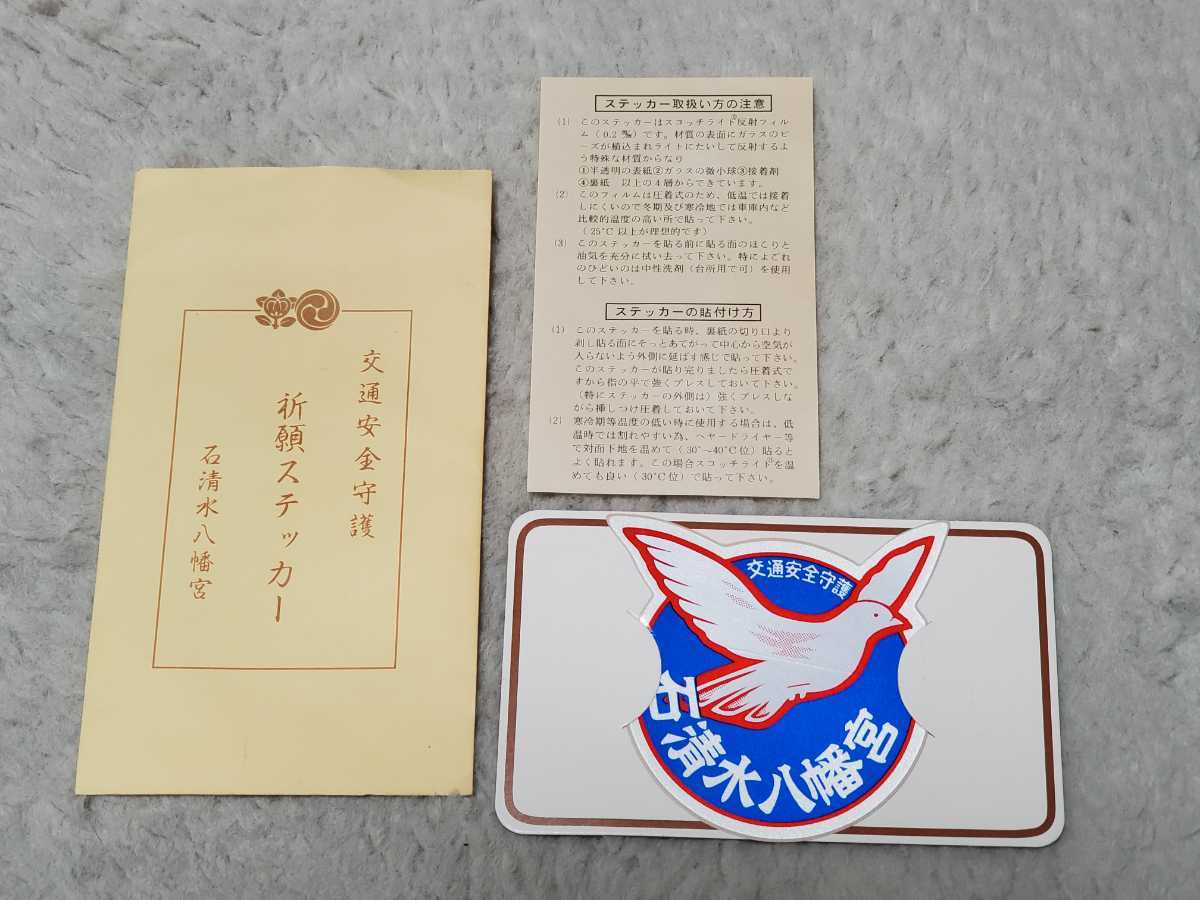 交通安全守護
祈願ステッカー
石清水八幡宮
ステッカー取扱い方の注意
(1) このステッカーはスコッチライト®反射フィル
ム(0.2㎜)です。材質の表面にガラスのビ
ーズが植込まれライトにたいして反射するよ
う特殊な材質からなり
①半透明の表紙②ガラスの微小球③接着剤
④裏紙 以上の4層からできています。
(2) このフィルムは圧着式のため、低温では接着
しにくいので冬期及び寒冷地では車庫内など
比較的温度の高い所で貼って下さい。
(25°C以上が理想的です)
(3) このステッカーを貼る前に貼る面のほこりと
油気を充分に拭い去って下さい。特によごれ
のひどいのは中性洗剤(台所用で可)を使用
して下さい。
ステッカーの貼付け方
(1) このステッカーを貼る時、裏紙の切り口より
剥し貼る面にそっとあてがって中心から空気が
入らないよう外側に延ばす感じで貼って下さい。
このステッカーが貼り完りましたら圧着式で
すから指の平で強くプレスしておいて下さい。
(特にステッカーの外側は)強くプレスしな
がら挿しつけ圧着しておいて下さい。
(2) 寒冷期等温度の低い時に使用する場合は、低
温時では割れやすい為、ヘヤードライヤー等
で対面下地を温めて(30°~40°C位)貼ると
よく貼れます。この場合スコッチライト®を温
めても良い(30°C位)で貼って下さい。
交通安全守護
石清水八幡宮